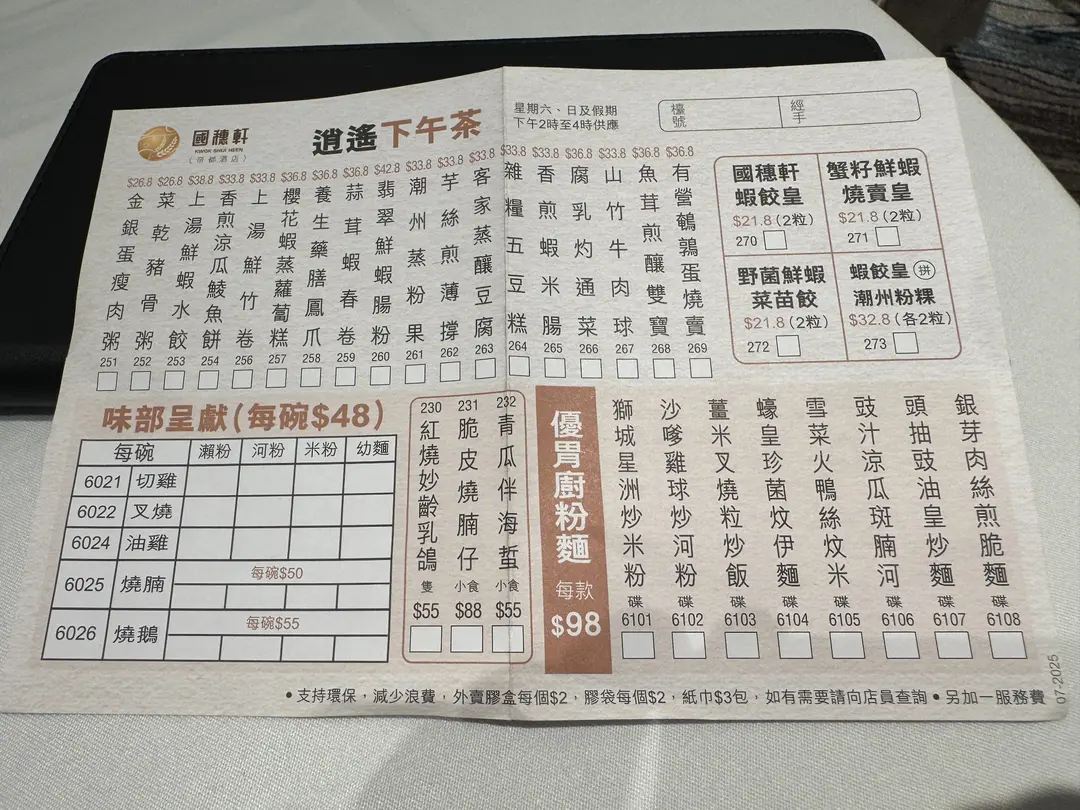 國穗軒
KWOK SHUI HEEN
(帝都酒店)
逍遙下午茶
星期六、日及假期
下午2時至4時供應
檯號
經手
$26.8 金銀蛋瘦肉粥 251
$26.8 菜乾豬骨粥 252
$38.8 上湯鮮蝦水餃 253
$33.8 香煎涼瓜鯪魚餅 254
$33.8 上湯鮮竹卷 256
$36.8 櫻花蝦蒸蘿蔔糕 257
$36.8 養生藥膳鳳爪 258
$36.8 蒜茸蝦春卷 259
$42.8 翡翠鮮蝦腸粉 260
$33.8 潮州蒸粉果 261
$33.8 芋絲煎薄撐 262
$33.8 客家蒸釀豆腐 263
$33.8 雜糧五豆糕 264
$33.8 香煎蝦米腸 265
$36.8 腐乳灼通菜 266
$33.8 山竹牛肉球 267
$36.8 魚茸煎釀雙寶 268
$36.8 有營鵪鶉蛋燒賣 269
國穗軒
蝦餃皇
$21.8 (2粒)
270
蟹籽鮮蝦
燒賣皇
$21.8 (2粒)
271
野菌鮮蝦
菜苗餃
$21.8 (2粒)
272
蝦餃皇 拼
潮州粉粿
$32.8 (各2粒)
273
味部呈獻(每碗$48)
每碗 瀨粉 河粉 米粉 幼麵
6021 切雞
6022 叉燒
6024 油雞
6025 燒腩 每碗$50
6026 燒鵝 每碗$55
230 紅燒妙齡乳鴿 隻 $55
231 脆皮燒腩仔 小食 $88
232 青瓜伴海蜇 小食 $55
優胃廚粉麵
每款
$98
獅城星洲炒米粉 碟 6101
沙嗲雞球炒河粉 碟 6102
薑米叉燒粒炒飯 碟 6103
蠔皇珍菌炆伊麵 碟 6104
雪菜火鴨絲炆米 碟 6105
豉汁涼瓜斑腩河 碟 6106
頭抽豉油皇炒麵 碟 6107
銀芽肉絲煎脆麵 碟 6108
•支持環保，減少浪費，外賣膠盒每個$2，膠袋每個$2，紙巾$3包，如有需要請向店員查詢•另加一服務費
07-2025